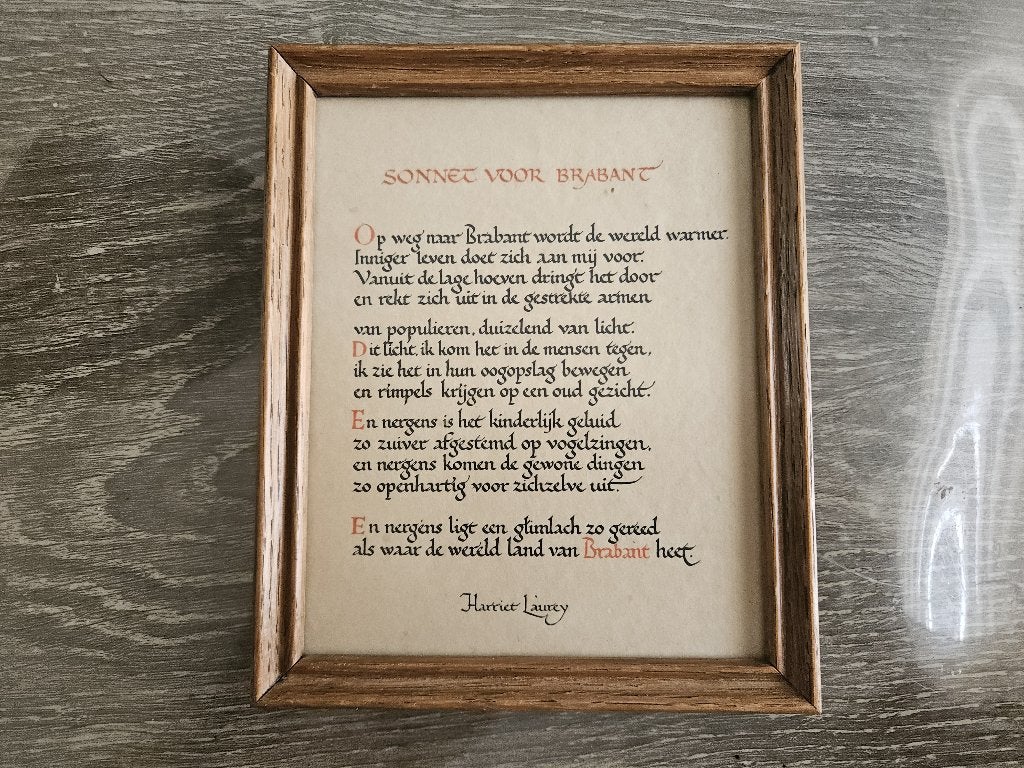 SONNET VOOR BRABANT
Op weg naar Brabant wordt de wereld warmer.
Inniger leven doet zich aan mij voor.
Vanuit de lage hoeven dringt het door
en rekt zich uit in de gestrekte armen
van populieren, duizelend van licht.
Dit licht, ik kom het in de mensen tegen,
ik zie het in hun oogopslag bewegen
en rimpels krijgen op een oud gezicht.
En nergens is het kinderlijk geluid
zo zuiver afgestemd op vogelzingen,
en nergens komen de gewone dingen
zo openhartig voor zichzelve uit.
En nergens ligt een glimlach zo gereed
als waar de wereld land van Brabant heet.
Harriet Laurey